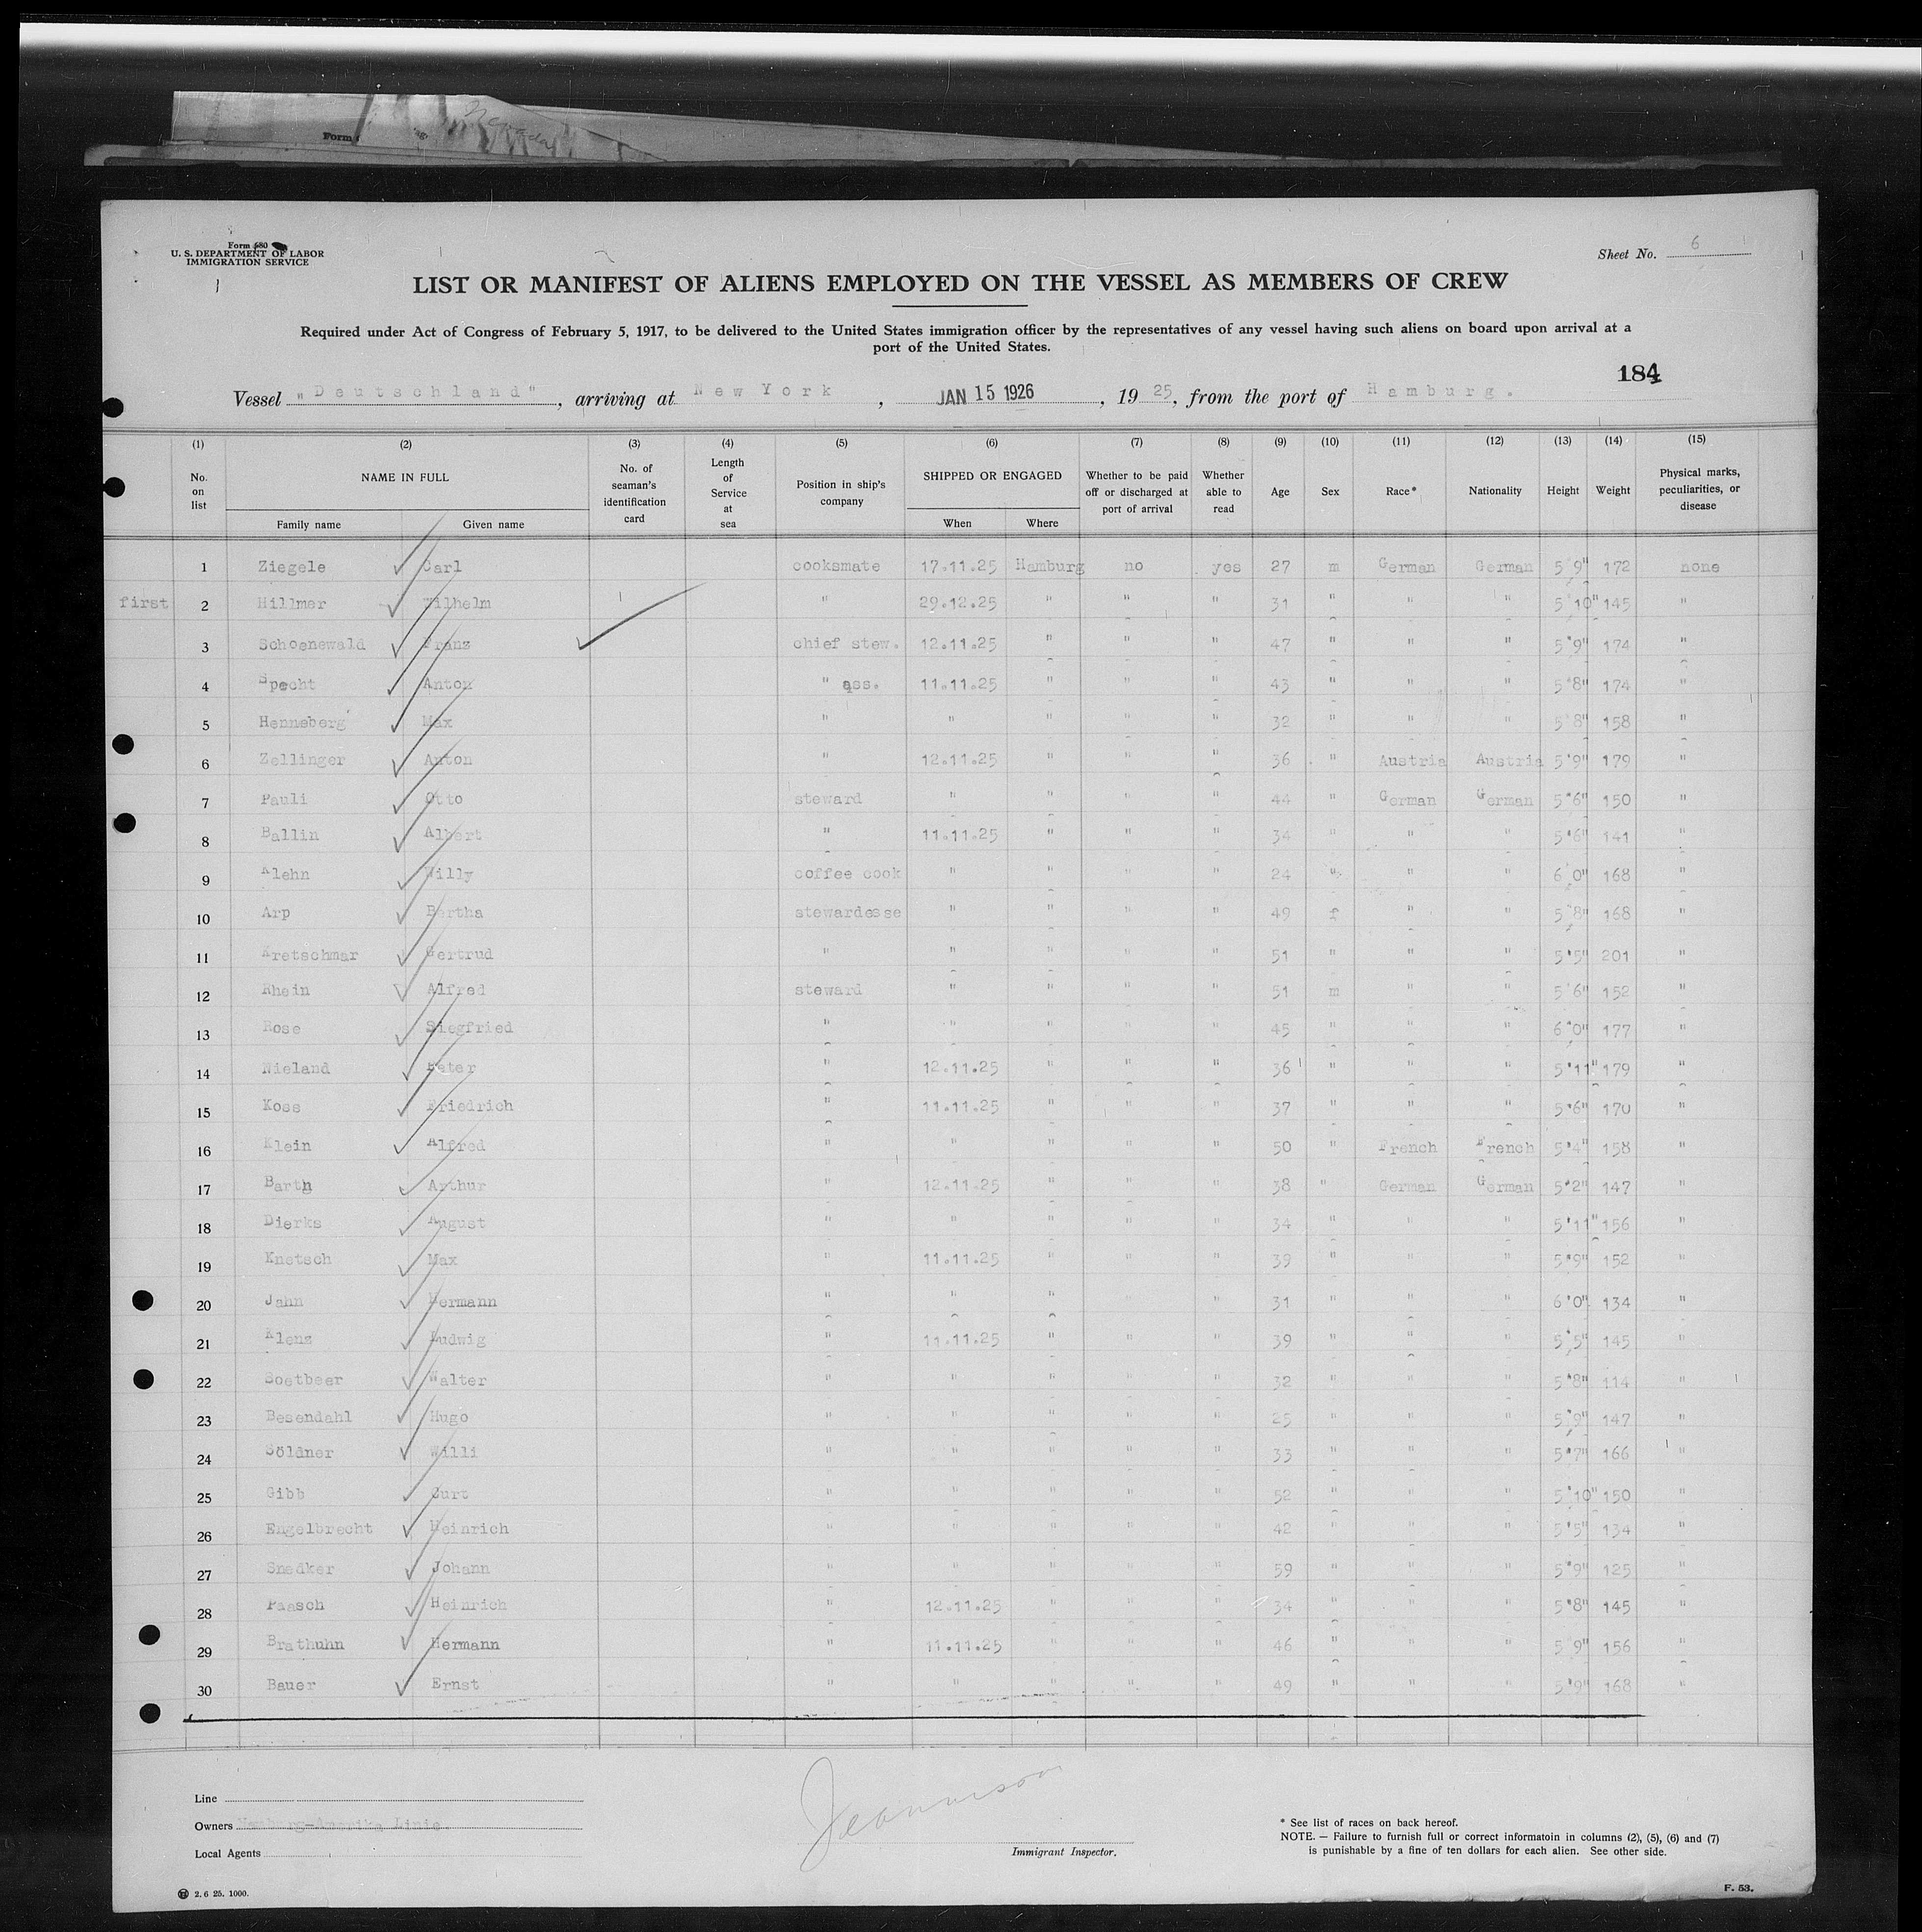 Form
Nevada
Form 680
U. S. DEPARTMENT OF LABOR
IMMIGRATION SERVICE
Sheet No. 6
LIST OR MANIFEST OF ALIENS EMPLOYED ON THE VESSEL AS MEMBERS OF CREW
Required under Act of Congress of February 5, 1917, to be delivered to the United States immigration officer by the representatives of any vessel having such aliens on board upon arrival at a
port of the United States.
184
Vessel "Deutschland", arriving at New York, JAN 15 1926, 1925, from the port of Hamburg.
(1) (2) (3) (4) (5) (6) (7) (8) (9) (10) (11) (12) (13) (14) (15)
No. on list NAME IN FULL Family name Given name No. of seaman's identification card Length of Service at sea Position in ship's company SHIPPED OR ENGAGED When Where Whether to be paid off or discharged at port of arrival Whether able to read Age Sex Race* Nationality Height Weight Physical marks, peculiarities, or disease
1 Ziegele Carl cooksmate 17.11.25 Hamburg no yes 27 m German German 5'9" 172 none
first 2 Hillmer Wilhelm " 29.12.25 " " " 31 " " " 5'10" 145 "
3 Schoenewald Franz chief stew. 12.11.25 " " " 47 " " " 5'9" 174 "
4 Specht Anton " ass. 11.11.25 " " " 43 " " " 5'8" 174 "
5 Henneberg Max " " " " " 32 " " " 5'8" 158 "
6 Zellinger Anton " 12.11.25 " " " 36 " Austria Austria 5'9" 179 "
7 Pauli Otto steward " " " " 44 " German German 5'6" 150 "
8 Ballin Albert " 11.11.25 " " " 34 " " " 5'6" 141 "
9 Klehn Willy coffee cook " " " " 24 " " " 6'0" 168 "
10 Arp Bertha stewardesse " " " " 49 f " " 5'8" 168 "
11 Kretschmar Gertrud " " " " " 51 " " " 5'5" 201 "
12 Rhein Alfred steward " " " " 51 m " " 5'6" 152 "
13 Rose Siegfried " " " " " 45 " " " 6'0" 177 "
14 Nieland Peter " 12.11.25 " " " 36 " " " 5'11" 179 "
15 Koss Friedrich " 11.11.25 " " " 37 " " " 5'6" 170 "
16 Klein Alfred " " " " " 50 " French French 5'4" 158 "
17 Barth Arthur " 12.11.25 " " " 38 " German German 5'2" 147 "
18 Dierks August " " " " " 34 " " " 5'11" 156 "
19 Knetsch Max " 11.11.25 " " " 39 " " " 5'9" 152 "
20 Jahn Hermann " " " " " 31 " " " 6'0" 134 "
21 Klenz Ludwig " 11.11.25 " " " 39 " " " 5'5" 145 "
22 Soetbeer Walter " " " " " 32 " " " 5'8" 114 "
23 Besendahl Hugo " " " " " 25 " " " 5'9" 147 "
24 Söldner Willi " " " " " 33 " " " 5'7" 166 "
25 Gibb Curt " " " " " 52 " " " 5'10" 150 "
26 Engelbrecht Heinrich " " " " " 42 " " " 5'5" 134 "
27 Snedker Johann " " " " " 59 " " " 5'9" 125 "
28 Paasch Heinrich " 12.11.25 " " " 34 " " " 5'8" 145 "
29 Brathuhn Hermann " 11.11.25 " " " 46 " " " 5'9" 156 "
30 Bauer Ernst " " " " " 49 " " " 5'9" 168 "
Line
Owners Hamburg-Amerika Linie.
Local Agents
Immigrant Inspector.
* See list of races on back hereof.
NOTE. — Failure to furnish full or correct informatoin in columns (2), (5), (6) and (7)
is punishable by a fine of ten dollars for each alien. See other side.
2. 6 25. 1000.
F. 53.